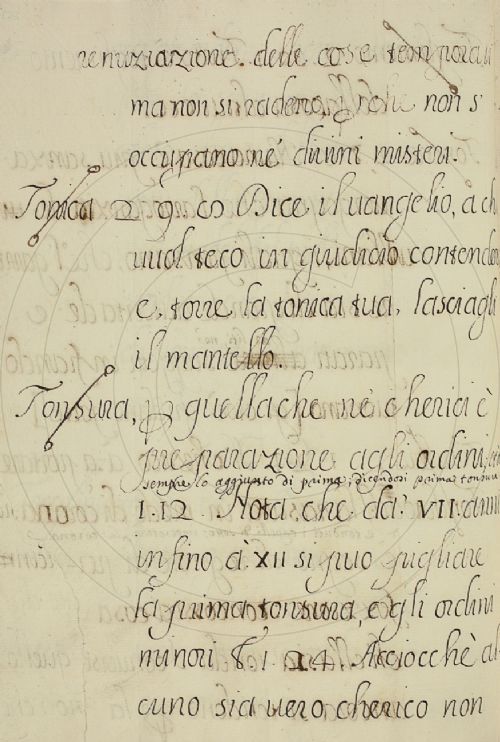 renuziazione delle cose temporali
ma non si radeno, perche non s
occupano ne divini misteri.
Tonica 2 9. co Dice il vangelio, a ch
vuol teco in giudicio contende
e, torre la tonica tua, lasciagli
il mantello.
Tonsura, quella che ne cherici è
preparazione agli ordini
sempre lo aggiunto di prima, dicendosi prima tonsura
1.12 Nota, che da' VII anni
infino à XII si puo pigliare
la prima tonsura, e gli ordini
minori 1 24. Acciocchè al
cuno sia vero cherico non